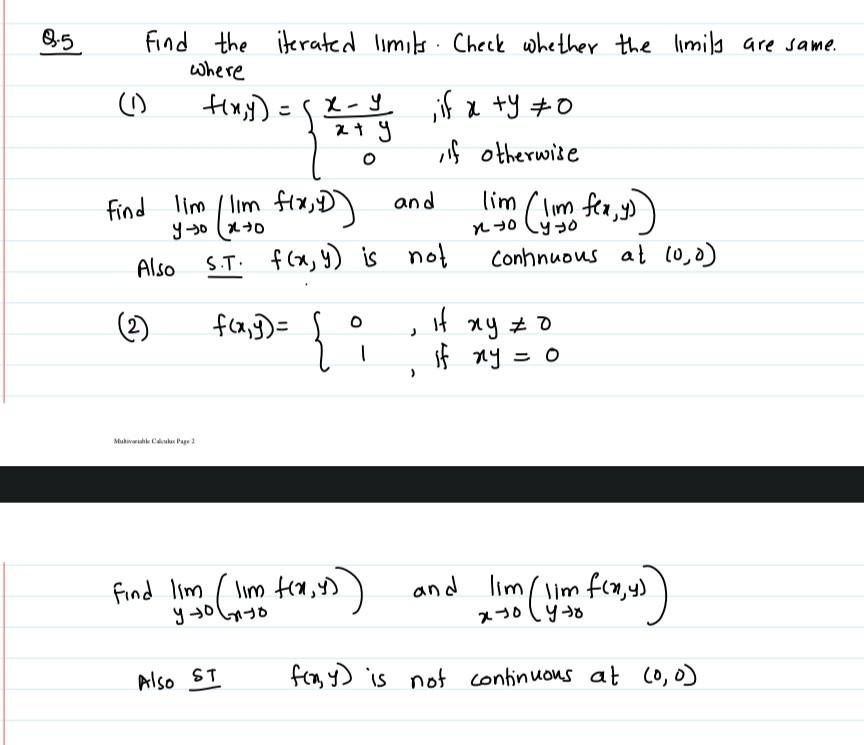 Q.5 Find the iterated limits. Check whether the limits are same.
where
(1) f(x,y) = { x - y / x + y , if x + y ≠ 0
0 , if otherwise
Find lim y→0 ( lim x→0 f(x,y) ) and lim x→0 ( lim y→0 f(x,y) )
Also S.T. f(x,y) is not continuous at (0,0)
(2) f(x,y) = { 0 , if xy ≠ 0
1 , if xy = 0
Multivariable Calculus Page 2
Find lim y→0 ( lim x→0 f(x,y) ) and lim x→0 ( lim y→0 f(x,y) )
Also ST f(x,y) is not continuous at (0,0)